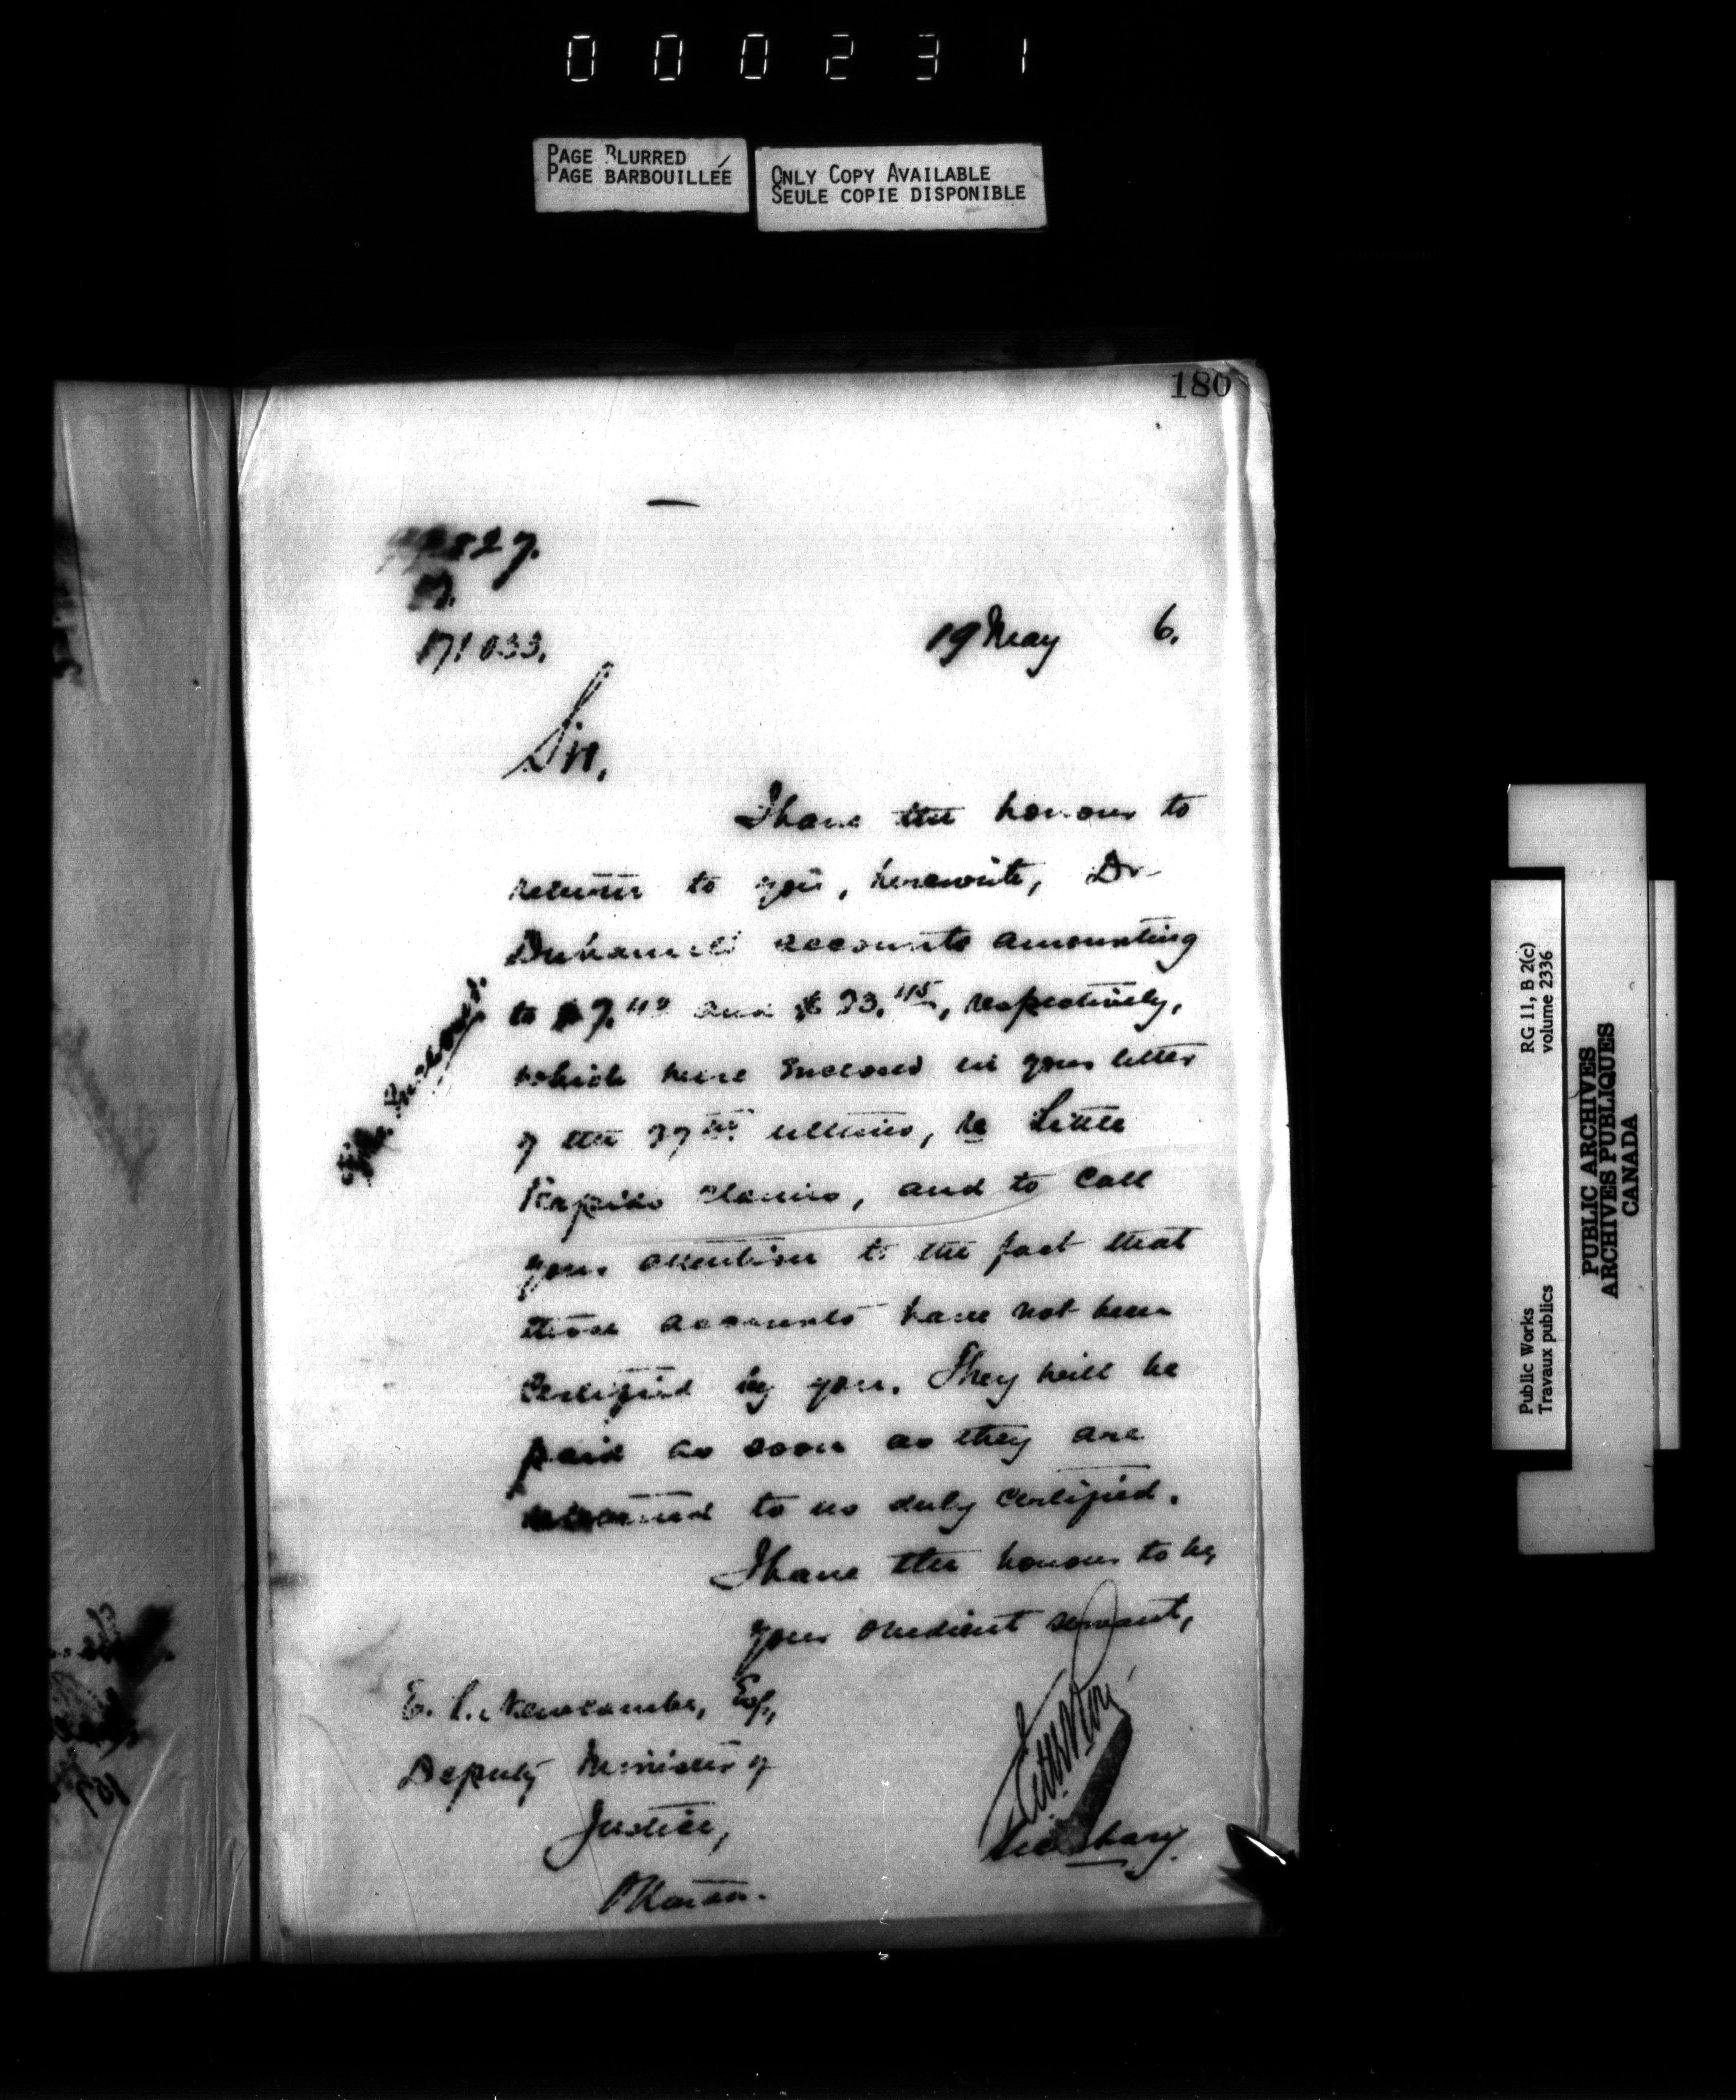 000231
PAGE BLURRED
PAGE BARBOUILLÉE
ONLY COPY AVAILABLE
SEULE COPIE DISPONIBLE
180
827.
171033.
19 May 6.
Sir,
I have the honour to
return to you, herewith, Dr
Duhamel's accounts amounting
to $ and $, respectively,
which were enclosed in your letter
of the ultimo, re Little
Rapids claims, and to call
your attention to the fact that
those accounts have not been
certified by you. They will be
paid as soon as they are
returned to us duly certified.
I have the honour to be,
your obedient servant,
E. L. Newcombe, Esq,
Deputy Minister of
Justice,
Ottawa.
Secretary.
Public Works
Travaux publics
RG 11, B 2(c)
volume 2336
PUBLIC ARCHIVES
ARCHIVES PUBLIQUES
CANADA